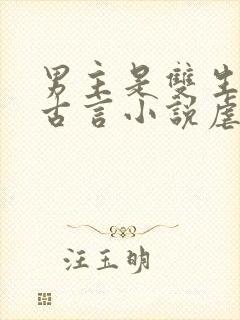 男主是雙生
古言小說虐
汪玉明